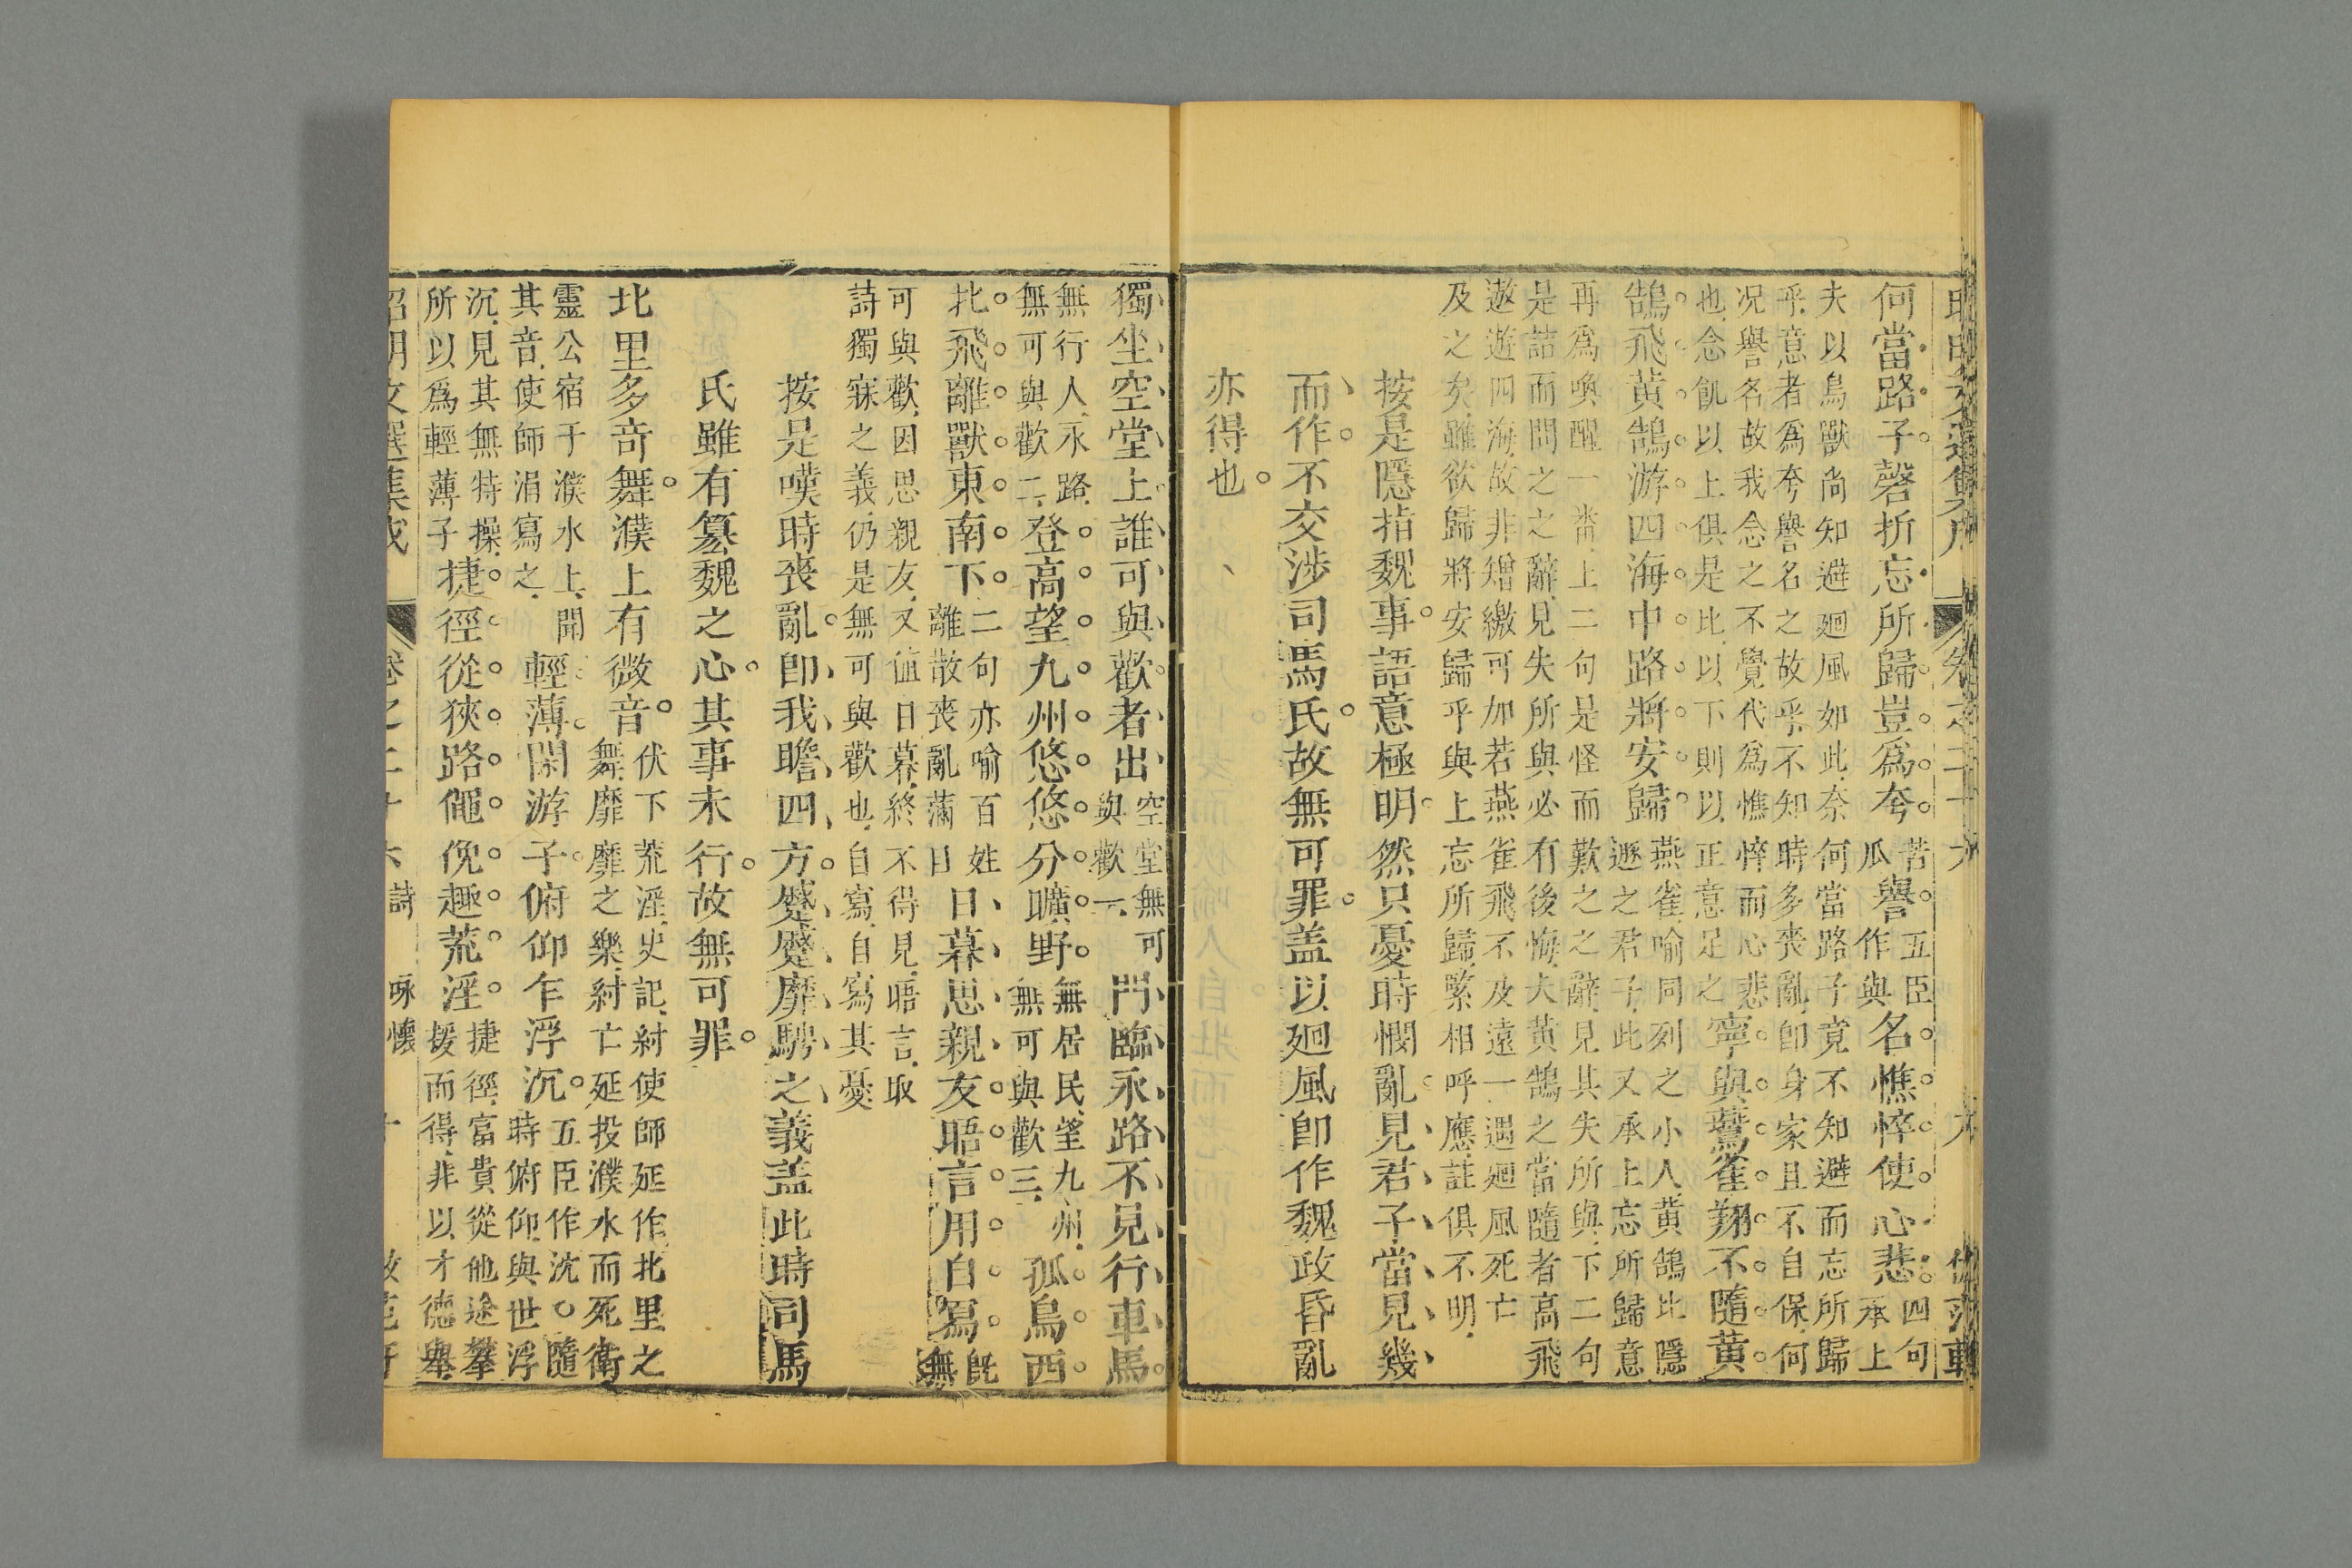 何當路子磬折忘所歸。豈爲夸。
苦
瓜
譽。
五臣
作與
名。憔悴使心悲。
四句
承上
夫以鳥獸尚知避廻風如此奈何當路子竟不知避而忘所歸
乎意者爲夸譽名之故乎不知時多喪亂卽身家且不自保何
况譽名故我念之不覺代爲憔悴而心悲
也念飢以上俱是比以下則以正意足之
寧與鷰雀翔。不隨黃
鵠飛。黃鵠游四海。中路將安歸。
燕雀喻同列之小人黃鵠比隱
遯之君子此又承上忘所歸意
再爲喚醒一番上二句是怪而歎之之辭見其失所與下二句
是詰而問之之辭見失所與必有後悔夫黃鵠之當隨者高飛
遨遊四海故非矰繳可加若燕雀飛不及遠一遇廻風死亡
及之矣雖欲歸將安歸乎與上忘所歸緊相呼應註俱不明
按是隱指魏事。語意極明。然只憂時憫亂。見君子當見幾
而作。不交涉司馬氏。故無可罪。盖以廻風卽作魏政昏亂
亦得也。
獨坐空堂上。誰可與歡。者出
空堂無可
與歡一
門臨永路不見行車馬。
無行人永路
無可與歡二
登高望九州。悠悠分曠野。
無居民望九州
無可與歡三
孤鳥西
北飛。離獸東南下。
二句亦喻百姓
離散喪亂滿目
日暮思親友。晤言用自寫。
旣
無
可與歡因思親友又値日暮終不得見晤言取
詩獨寐之義仍是無可與歡也自寫自寫其憂
按是嘆時喪亂。卽我瞻四方。蹙蹙靡騁之義盖此時司馬
氏雖有簒魏之心。其事未行。故無可罪。
北里多奇舞。濮上有微音。
伏下荒淫史記紂使師延作北里之
舞靡靡之樂紂亡延投濮水而死衛
靈公宿于濮水上聞
其音使師涓寫之
輕薄閑游子。俯仰乍浮沉。
五臣作沈○隨
時俯仰與世浮
沉見其無特操
所以爲輕薄子
捷徑從狹路。僶俛趣荒淫。
捷徑富貴從他途攀
援而得非以才德舉
昭明文選集成 卷之二十六 詩 咏懷 十